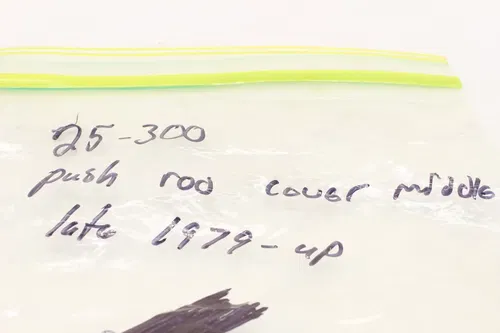 25-300
push rod cover middle
late 1979-up